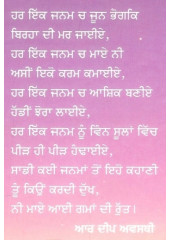 ਹਰ ਇੱਕ ਜਨਮ ਚ ਜੂਨ ਭੋਗਕਿ
ਬਿਰਹਾ ਦੀ ਮਰ ਜਾਈਏ,
ਹਰ ਇੱਕ ਜਨਮ ਚ ਮਾਏ ਨੀ
ਅਸੀਂ ਇਕੋ ਕਰਮ ਕਮਾਈਏ,
ਹਰ ਇੱਕ ਜਨਮ ਚ ਆਸ਼ਿਕ ਬਣੀਏ
ਹੱਡੀਂ ਝੋਰਾ ਲਾਈਏ,
ਹਰ ਇੱਕ ਜਨਮ ਨੂੰ ਵਿੰਨ ਸੂਲਾਂ ਵਿੱਚ
ਪੀੜ ਹੀ ਪੀੜ ਹੰਢਾਈਏ,
ਸਾਡੀ ਕਈ ਜਨਮਾਂ ਤੋਂ ਇਹੋ ਕਹਾਣੀ
ਤੂੰ ਕਿਉਂ ਕਰਦੀ ਦੁੱਖ,
ਨੀ ਮਾਏ ਆਈ ਗਮਾਂ ਦੀ ਰੁੱਤ।
ਆਰ ਦੀਪ ਅਵਸਥੀ